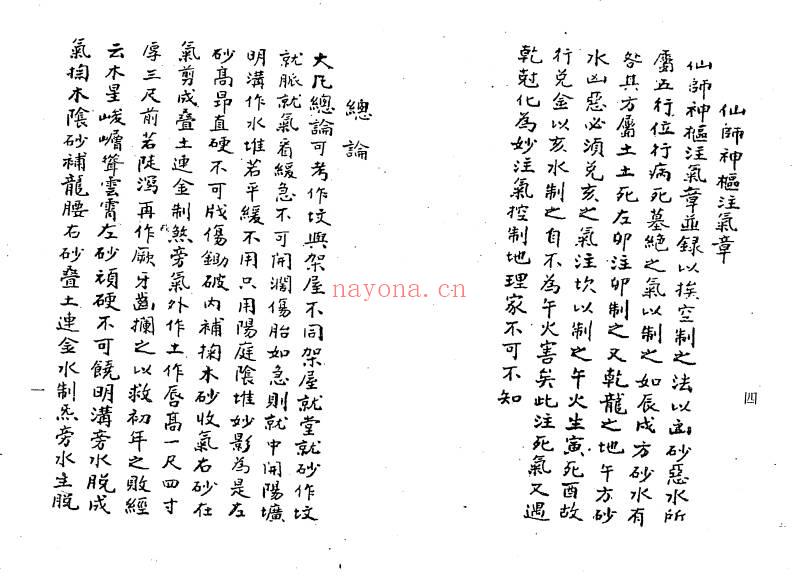 仙師神樞注氣章
仙師神樞注氣章並録以挨空制之法以凶砂惡水所
屬五行位行病死墓絶之氣以制之如辰戌方砂水有
咎其方屬土土死左卯注卯制之又乾龍之地午方砂
水凶惡必須兑亥之氣注坎以制之午火生寅死酉故
行兑金以亥水制之自不為午火害矣此注死氣又遇
乾尅化為妙注氣控制地理家不可不知
四
總論
大凡總論可考作坟與架屋不同架屋就堂就砂作坟
就脈就氣看緩急不可開濶傷胎如急則就中開陽壙
明溝作水堆若平緩不用只用陽庭陰堆妙影為是左
砂高昂直硬不可戕傷鋤破内補掏木砂收氣右砂在
氣剪成叠土連金制煞旁氣外作土作唇高一尺四寸
厚三尺前若陡瀉再作厥牙齒攔之以救初年之敗經
云木星峻嶒聳雲霄左砂頑硬不可饒明溝旁水脱成
氣掏木陰砂補龍腰右砂叠土連金水制炁旁水主脱
一
nayona.cn